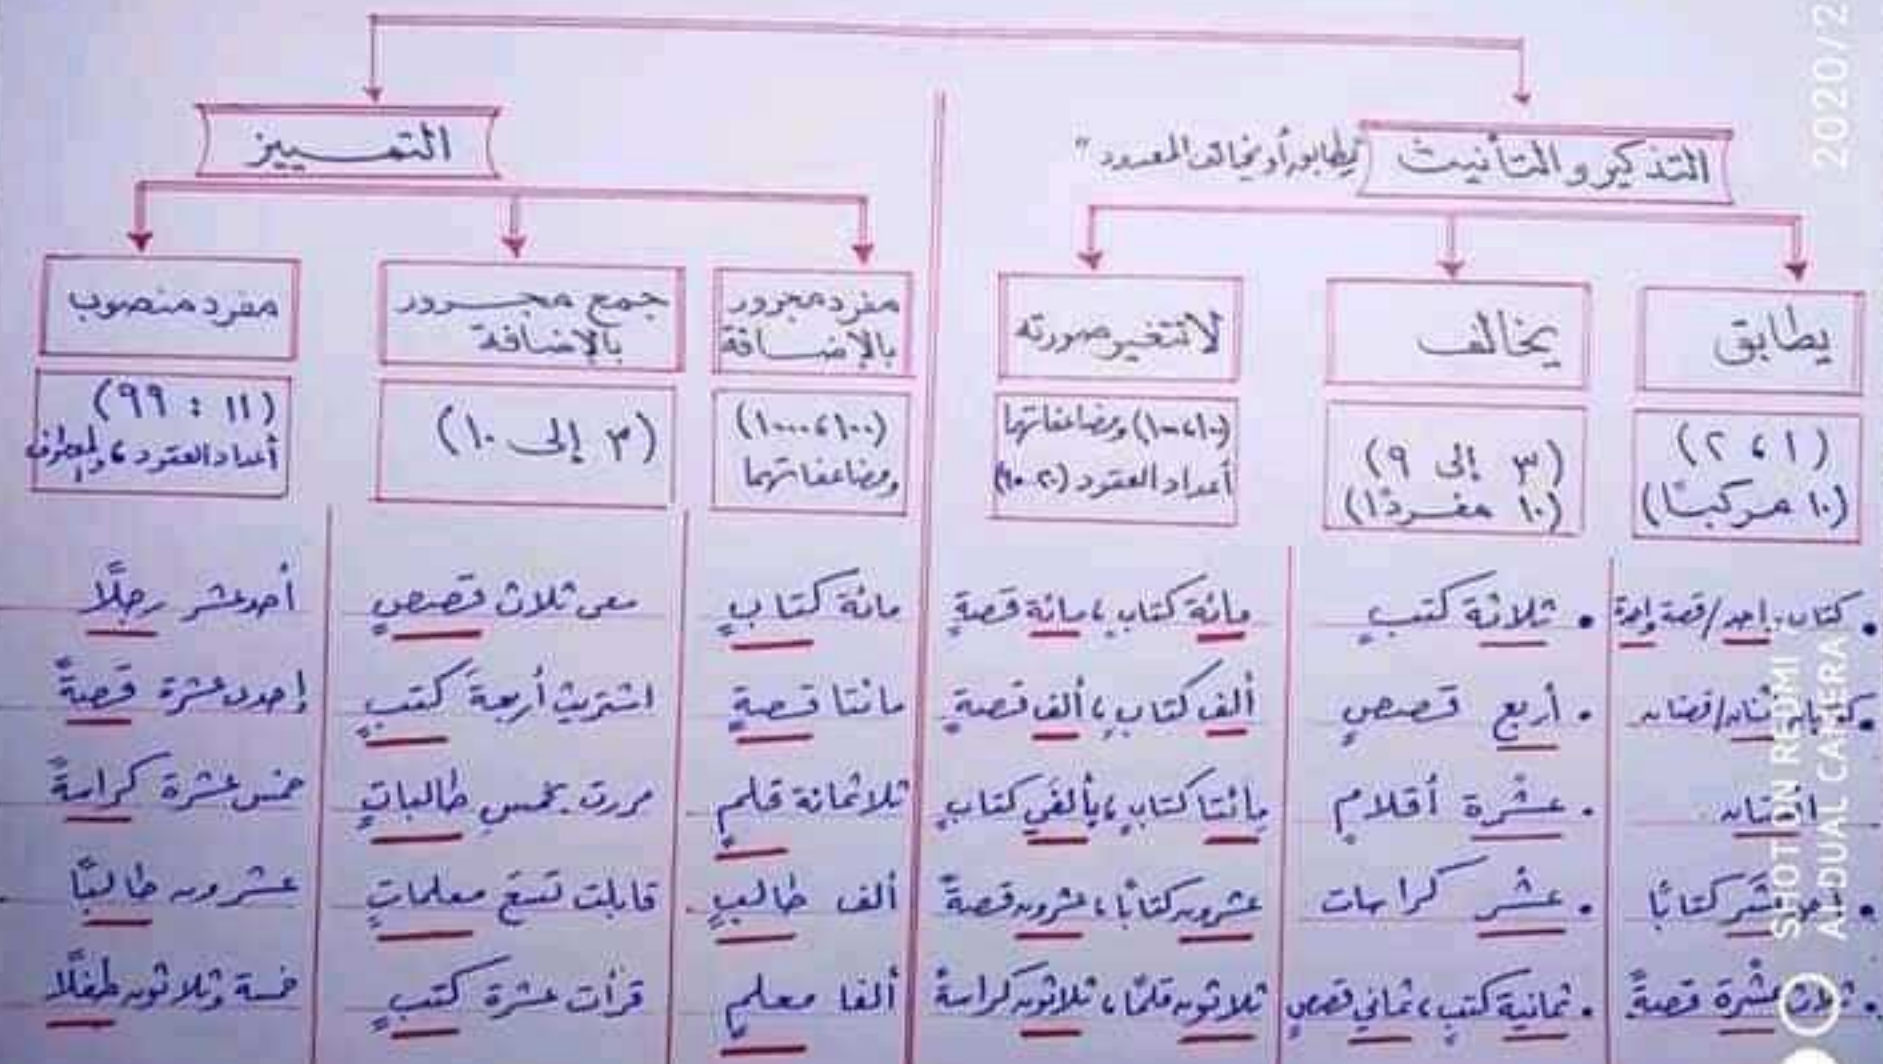 التذكير والتأنيث "يطابق أو يخالف المعدود"
يطابق
(١ ، ٢)
(١٠ مركبًا)
• كتاب واحد/قصة واحدة
اثنان/قصتان
اثنتان
عشر كتابًا
• ثلاث عشرة قصةً
يخالف
(٣ إلى ٩)
(١٠ مفردًا)
• ثلاثة كتبٍ
• أربع قصصٍ
• عشرة أقلامٍ
• عشر كراسات
• ثمانية كتبٍ، ثماني قصصٍ
لا تتغير صورته
ومضاعفاتهما
أعداد العقود (٢٠-٩٠)
مائة كتابٍ، مائة قصةٍ
ألف كتابٍ، ألف قصةٍ
مائتا كتابٍ، بألفي كتابٍ
عشرون كتابًا، عشرون قصةً
ثلاثون قلمًا، ثلاثون كراسةً
التمييز
مفرد مجرور
بالإضافة
(١٠٠، ١٠٠٠)
ومضاعفاتهما
مائة كتابٍ
مائتا قصةٍ
ثلاثمائة قلمٍ
ألف طالبٍ
ألفا معلمٍ
جمع مجرور
بالإضافة
(٣ إلى ١٠)
معي ثلاث قصصٍ
اشتريت أربعةَ كتبٍ
مررت بخمسِ طالباتٍ
قابلت تسعَ معلماتٍ
قرأت عشرة كتبٍ
مفرد منصوب
(١١ : ٩٩)
أعداد العقود، والمعطوف
أحد عشر رجلًا
إحدى عشرة قصةً
خمس عشرة كراسةً
عشرون طالبًا
خمسة وثلاثون طفلًا
2020/2
SHOT ON REDMI
AI DUAL CAMERA